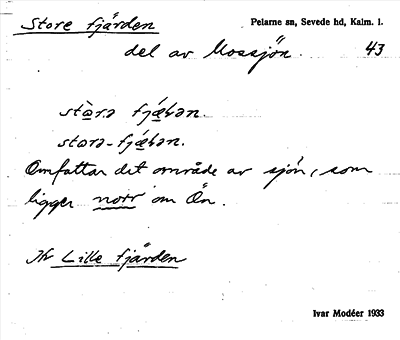 Store fjärden
Pelarne sn, Sevede hd, Kalm. l.
del av Mossjön.
43
Omfattar det område av sjön, som
ligger norr om Ön.
Jfr Lille fjärden
Ivar Modéer 1933